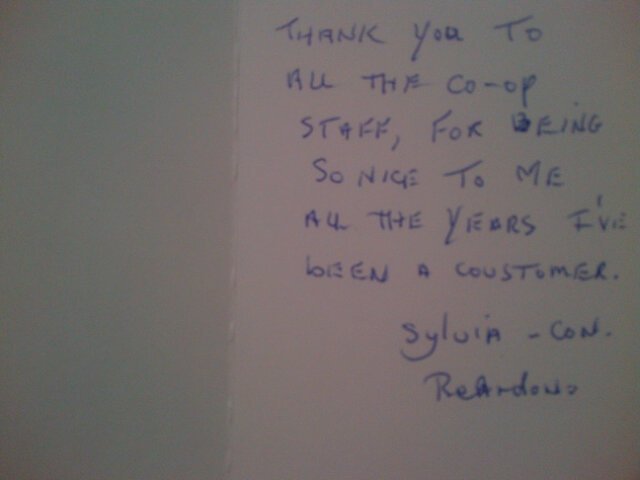 THANK YOU TO
ALL THE CO-OP
STAFF, FOR BEING
SO NICE TO ME
ALL THE YEARS I'VE
bEEN A COUSTOMER.
Sylvia - CON.